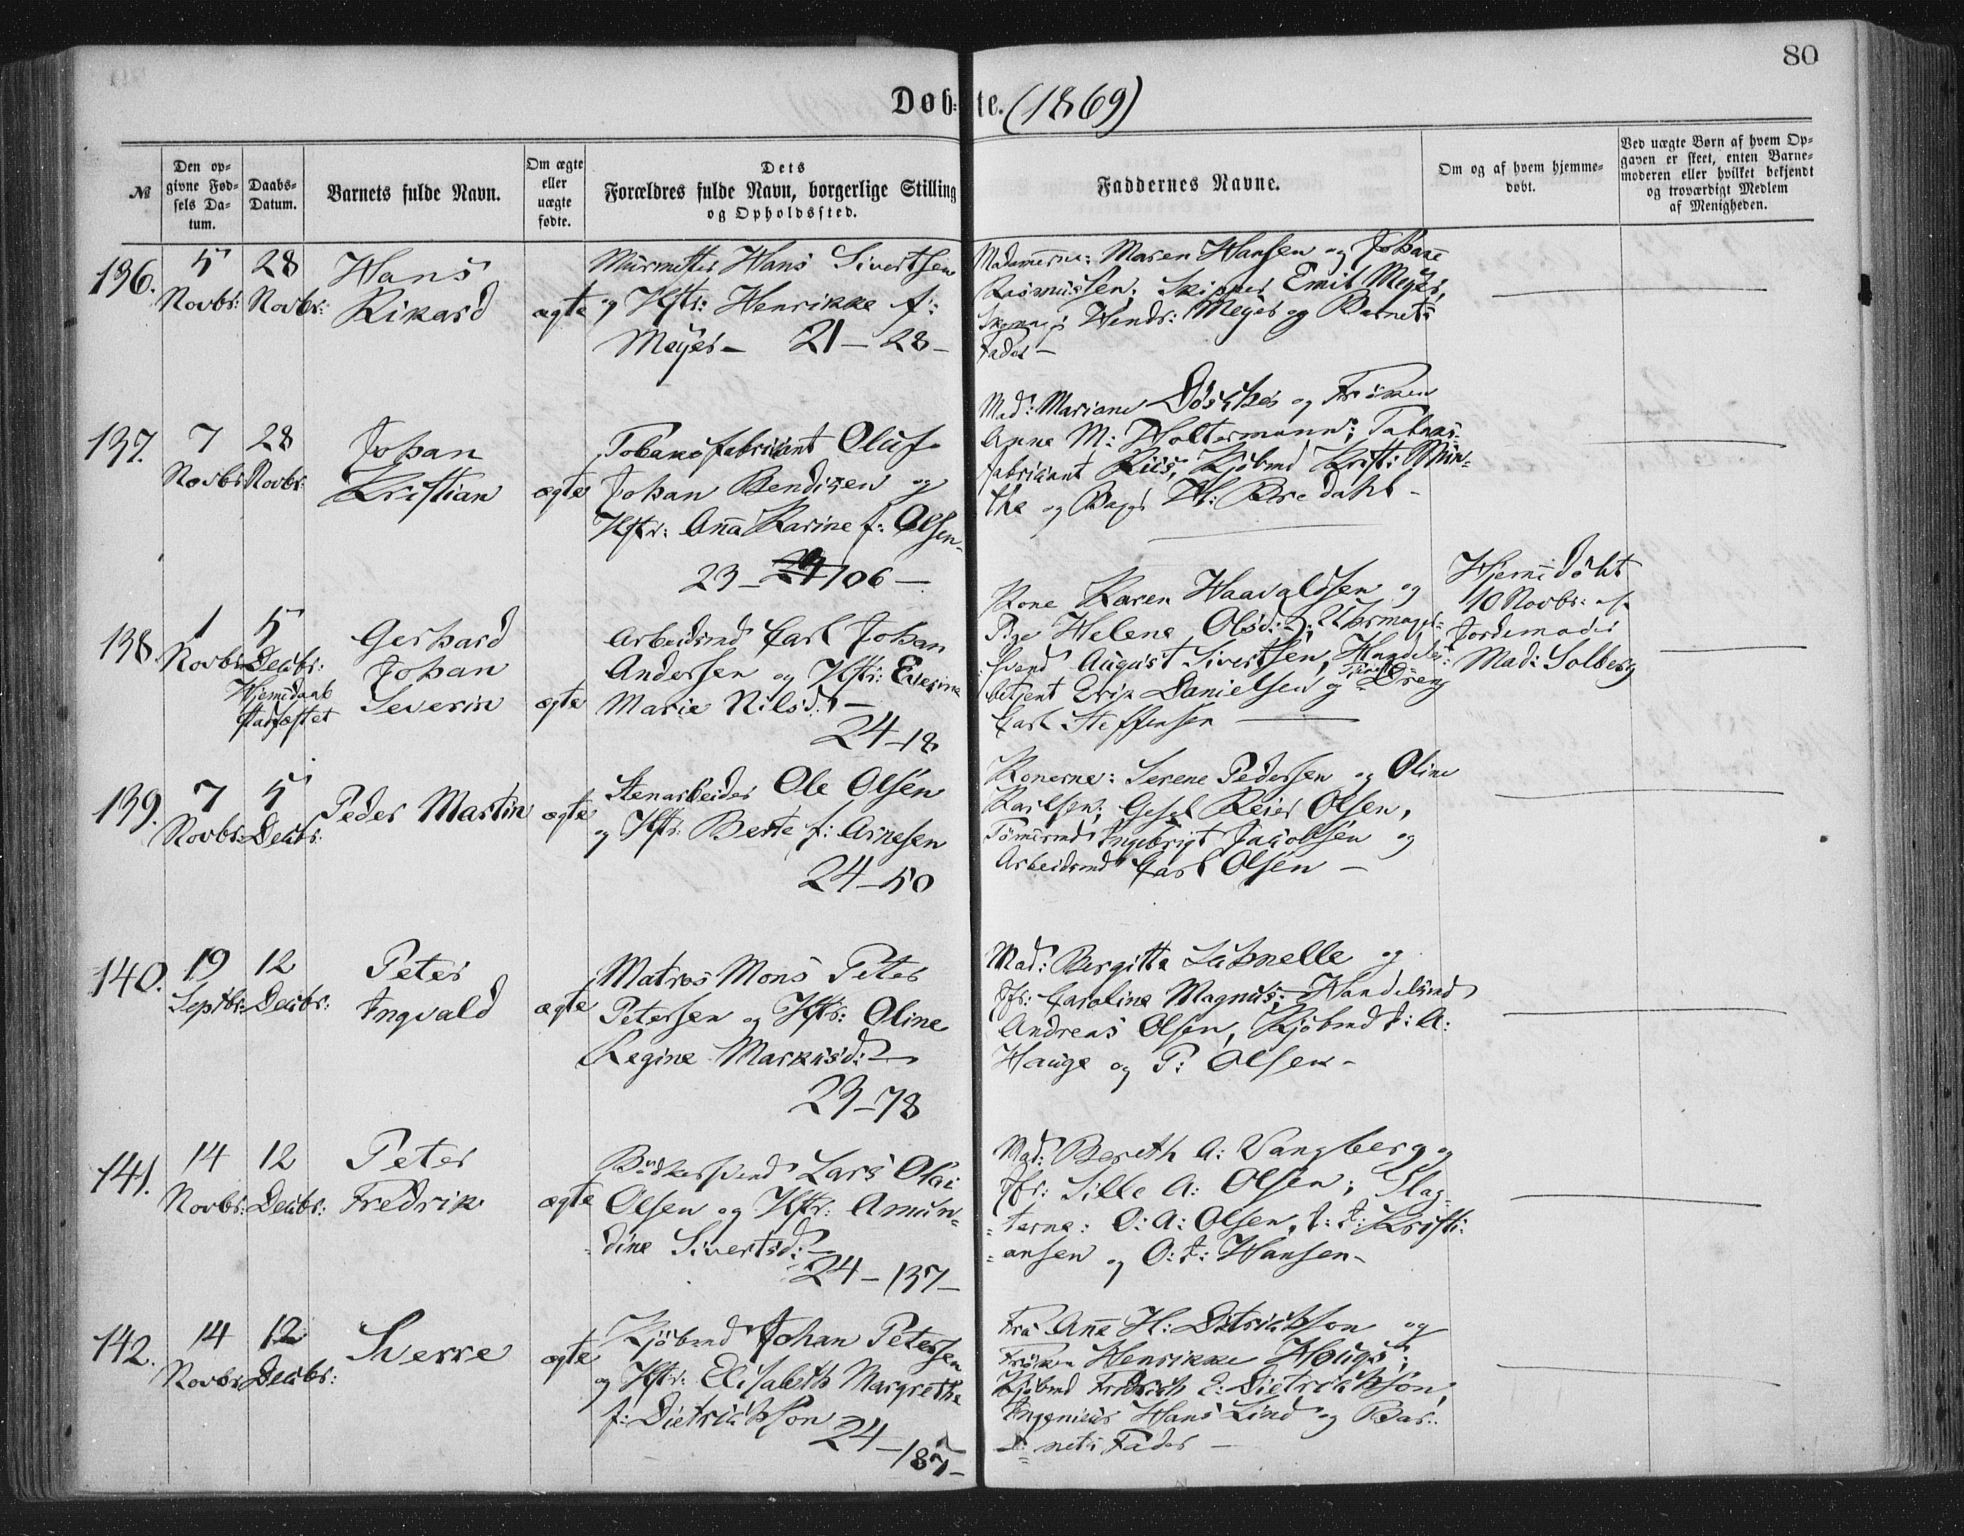 80
Døbte. (1869)
№
Den opgivne Fødsels Datum.
Daabs-Datum.
Barnets fulde Navn.
Om ægte eller uægte fødte.
Dets Forældres fulde Navn, borgerlige Stilling og Opholdssted.
Faddernes Navne.
Om og af hvem hjemmedøbt.
Ved uægte Børn af hvem Opgaven er skeet, enten Barnemoderen eller hvilket bekjendt og troværdigt Medlem af Menigheden.
136.
5 Novbr:
28 Novbr:
Hans
Rikard
ægte
Murmester Hans Sivertsen
og Hstr: Henrikke f:
Meyer – 21 – 28 –
Madamerne: Maren Hansen og Johane
Rasmussen; Skipper Emil Meyer,
Hendr: Meyer og Barnets
Fader –
137.
7 Novbr:
28 Novbr:
Johan
Kristian
ægte
Tobaksfabrikant Oluf
Johan Bendixen og
Hstr: Anna Karine f: Olsen –
23 – 106 –
Mad: Mariane og Frøken
Anne M: Woltermann; Tobaks-
fabrikant Riis, Kjøbmd Kristi: Mün-
the og Bager H: Bredahl –
138.
1 Novbr:
5 Decbr:
Hjemdaab
stadfæstet
Gerhard
Johan
Severin
ægte
Arbeidsmd Carl Johan
Andersen og Hstr: Everine
Marie Nilsd: –
24 – 18
Kone Karen Haavaldsen og
Pige Helene Olsd:; Uhrmager-
svend August Sivertsen, Handels-
betjent Erik Danielsen og Dreng
Carl Steffensen
Hjemedøbt
10 Novbr: af
Jordemoder
Mad: Solberg
139.
7 Novbr:
5 Decbr:
Peder Martin
ægte
Stenarbeider Ole Olsen
og Hstr: Berte f: Arnesen
24 – 50
Konerne: Serene Pedersen og Oline
Karlsen; Gesel Reier Olsen,
Tømermd Ingebrigt Jacobsen og
Arbeidsmd Carl Olsen –
140.
19 Septbr:
12 Decbr:
Peter
Ingvald
ægte
Matros Mons Peter
Petersen og Hstr: Oline
Regine Markusd: –
23 – 78
Mad: Bergitte Lühnelle og
Jfr: Caroline Magnus; Handelsmd
Andreas Olsen, Kjøbmd J: A:
Hauge og P: Olsen –
141.
14 Novbr:
12 Decbr:
Peter
Fredrik
ægte
Bødkersvend Lars Olai
Olsen og Hstr: Amun-
dine Sivertsd: –
24 – 137 –
Mad: Bereth A: Vangberg og
Jfr: Sille A: Olsen; Slag-
terne: O: A: Olsen, J: J: Kristi-
ansen og O: J: Hansen –
142.
14 Novbr:
12 Decbr:
Sverre
ægte
Kjøbmd Johan Petersen
og Hstr: Elisabeth Margrethe
f: Dietrichson
24 – 187 –
Fru Ane H: Ditrichson og
Frøken Henrikke Houge;
Kjøbmd Fredrich E: Dietrichson,
Ingeniør Hans Lind og Bar-
nets Fader –